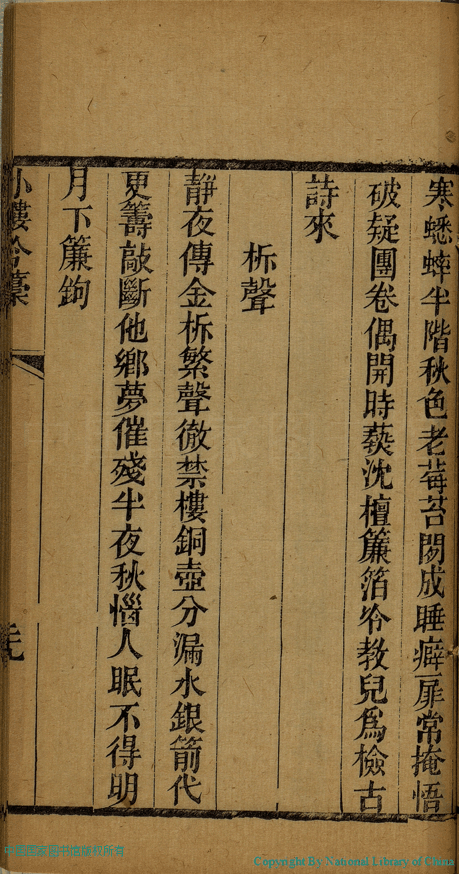 寒蟋蟀半階秋色老莓苔閑成睡癖扉常掩悟
破疑團卷偶開時爇沈檀簾箔冷教兒爲檢古
詩來
柝聲
靜夜傳金柝繁聲徹禁樓銅壺分漏水銀箭代
更籌敲斷他鄉夢催殘半夜秋惱人眠不得明
月下簾鉤
小樓吟藁
中国国家图书馆版权所有
Copyright By National Library of China